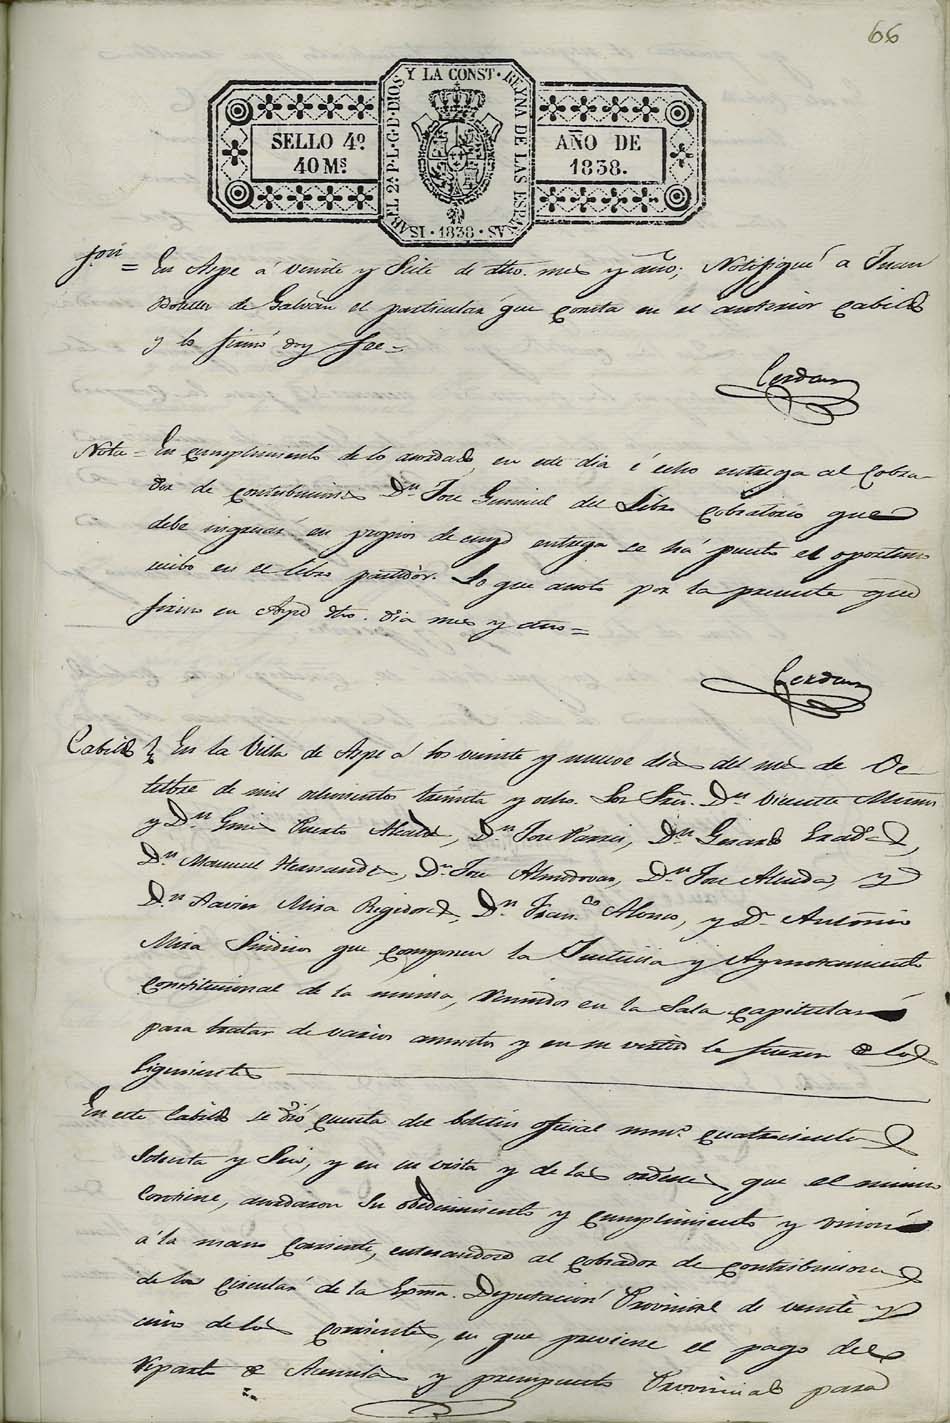 66
SELLO 4º 40 Mˢ.
ISABEL 2ª P.L.G.D DIOS Y LA CONST. REYNA DE LAS ESPAÑAS · 1838 ·
AÑO DE 1838.
En Aspe á veinte y Siete de dho. mes y año; Notifiqué á Juan
Botella de Galván el particular que consta en el anterior Cabildo
y lo firmó doy fee=
Cerdan
Nota = En cumplimiento de lo acordado, en este dia é echo entrega al Cobra-
dor de contribuciones Dn. Jose Gumiel del Libro Cobratorio que
debe ingresar en propios de cuya entrega se há puesto el oportuno
recibo en el libro . Lo que anoto por la presente que
firmo en Aspe dho. dia mes y año=
Cerdan
Cabildo En la Villa de Aspe á los veinte y nueve dias del mes de Oc-
tubre de mil ochocientos treinta y ocho. Los Sres. Dn. Vicente
y Dn. Gines Puerto Alcaldes, Dn. Jose , Dn. ,
Dn. Manuel Hernandez, Dn. Jose Almodovar, Dn. Jose , y
Dn. Xavier Mira Regidores, Dn. Franco. Alonso, y Dn. Antonio
Mira Sindicos que componen la Justicia y Ayuntamiento
Constitucional de la misma, reunidos en la Sala Capitular
para tratar de varios asuntos y en su virtud lo fueron de los
Siguientes
En este Cabildo se dió cuenta del boletin oficial numo. cuatrocientos
Setenta y Seis, y en su vista y de las ordenes que el mismo
Contiene, acordaron su obedecimiento y cumplimiento y
á la mano Corriente, enterandose al cobrador de contribuciones
de la circular de la Exma. Diputacion Provincial de veinte y
cinco de los corrientes, en que previene el pago del
Reparto de y presupuesto Provincial para